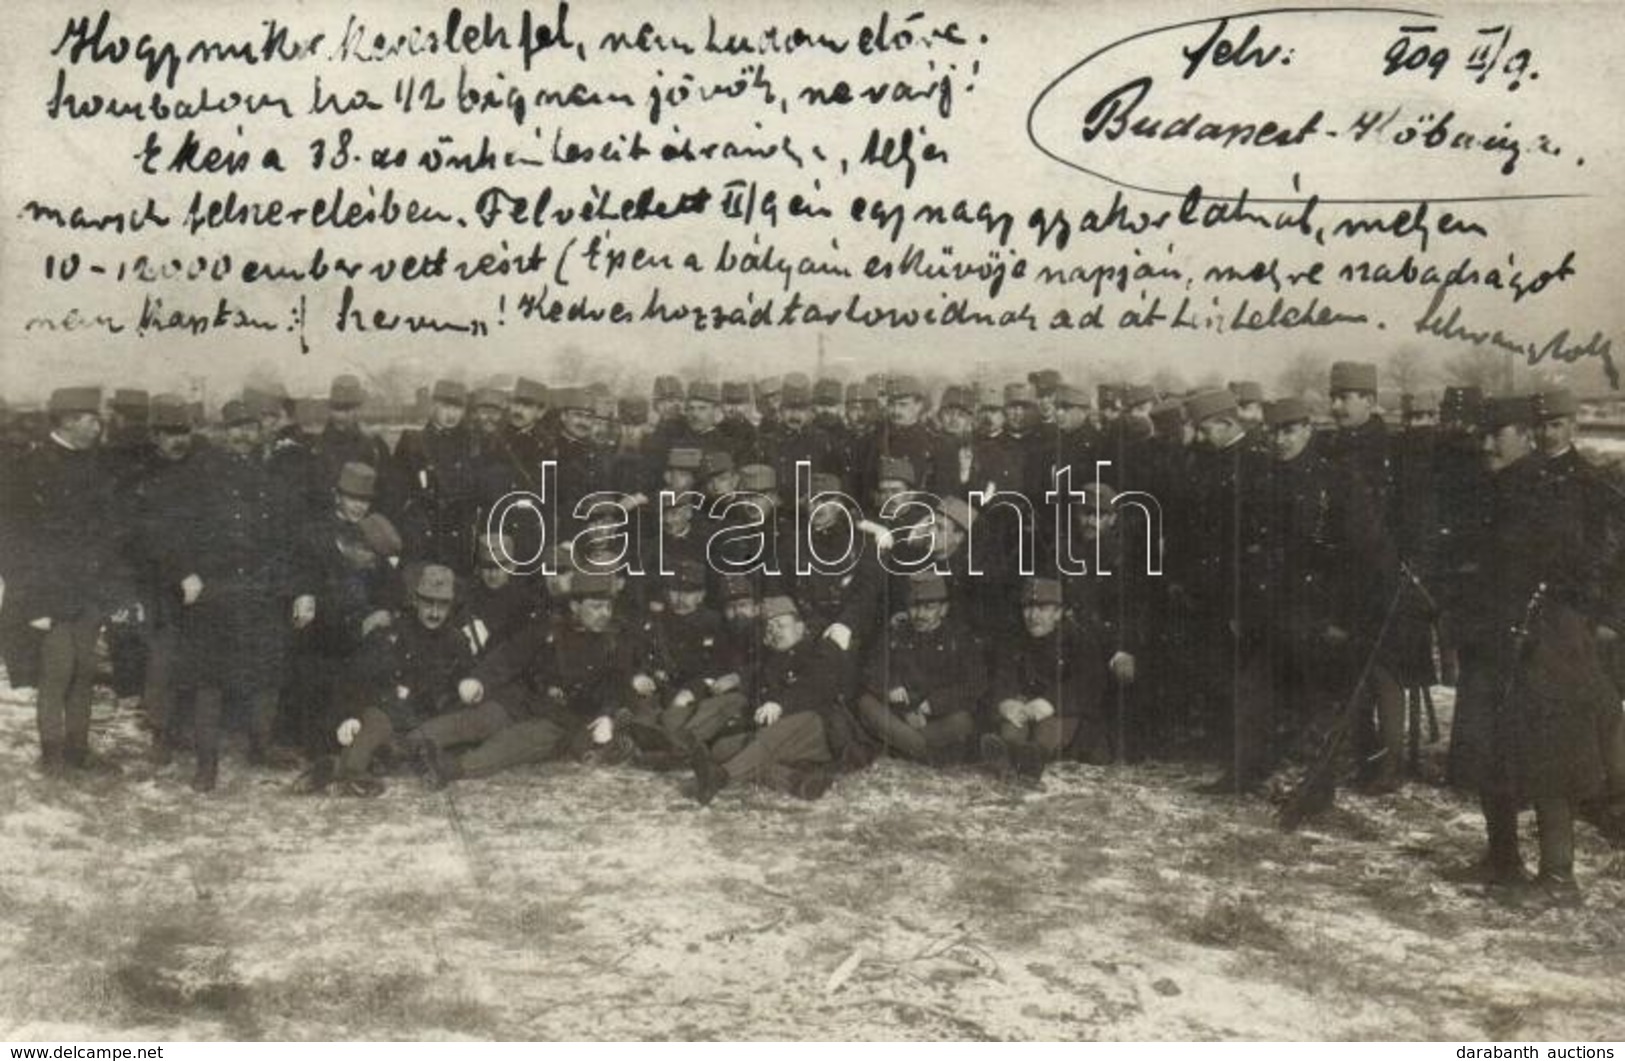 Hogy mikor kereslek fel, nem tudom előre.
Szombaton ha 1/2 6ig nem jövök, ne várj!
E kép a 38. as önkénteseit ábrázolja, teljes
marsch felszerelésben. Felvétetett II/9 én egy nagy gyakorlatnál, melyen
10-12000 ember vett részt (Épen a bátyám esküvője napján, melyre szabadságot
nem kaptam :/ Szervusz! Kedves hozzád tartozóidnak add át tiszteletem.
felv: 909 II/9.
Budapest-Kőbánya.
darabanth
darabanth.com
darabanth auctions